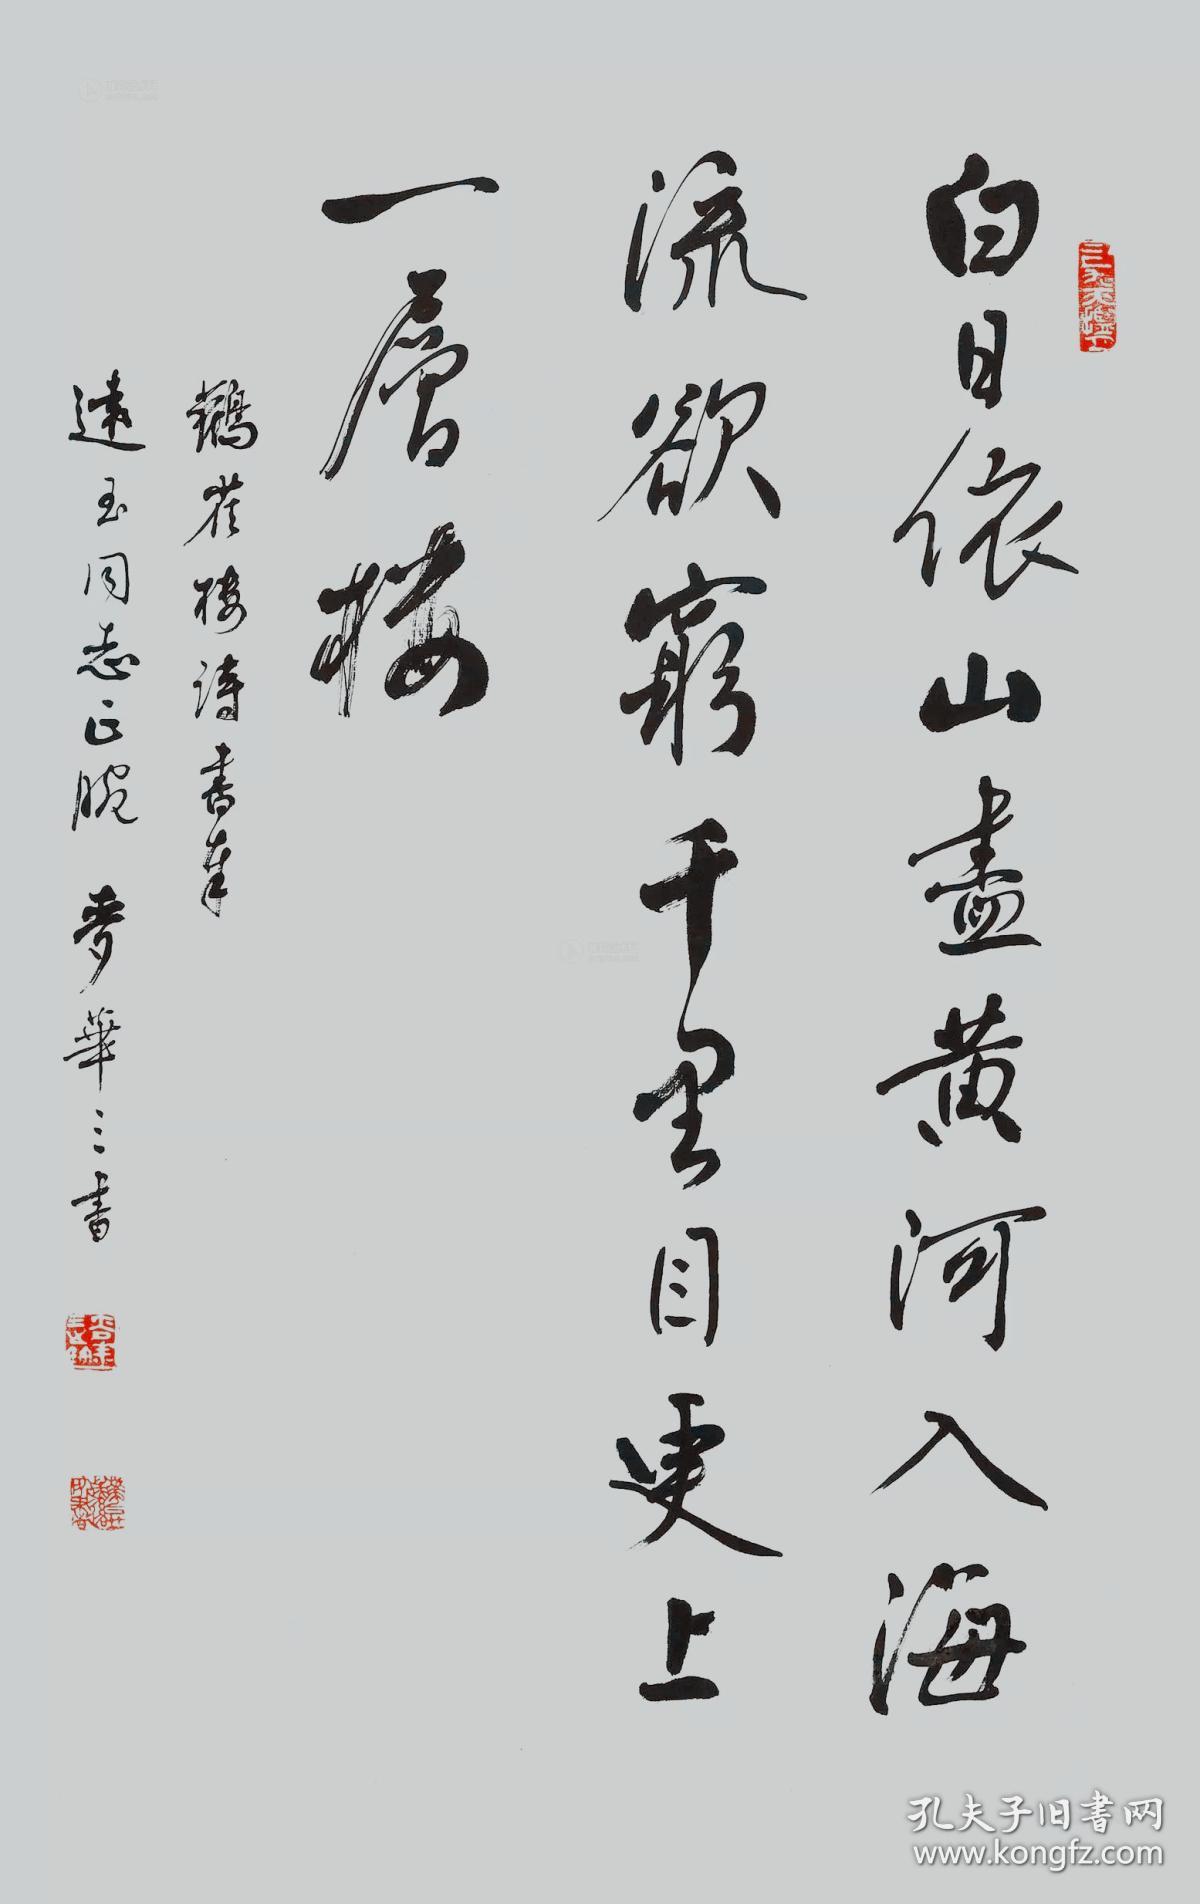 白日依山盡黄河入海
流欲窮千里目更上
一層樓
鸛雀樓詩書奉
遠玉同志正腕 夢華三書
孔夫子旧书网
www.kongfz.com